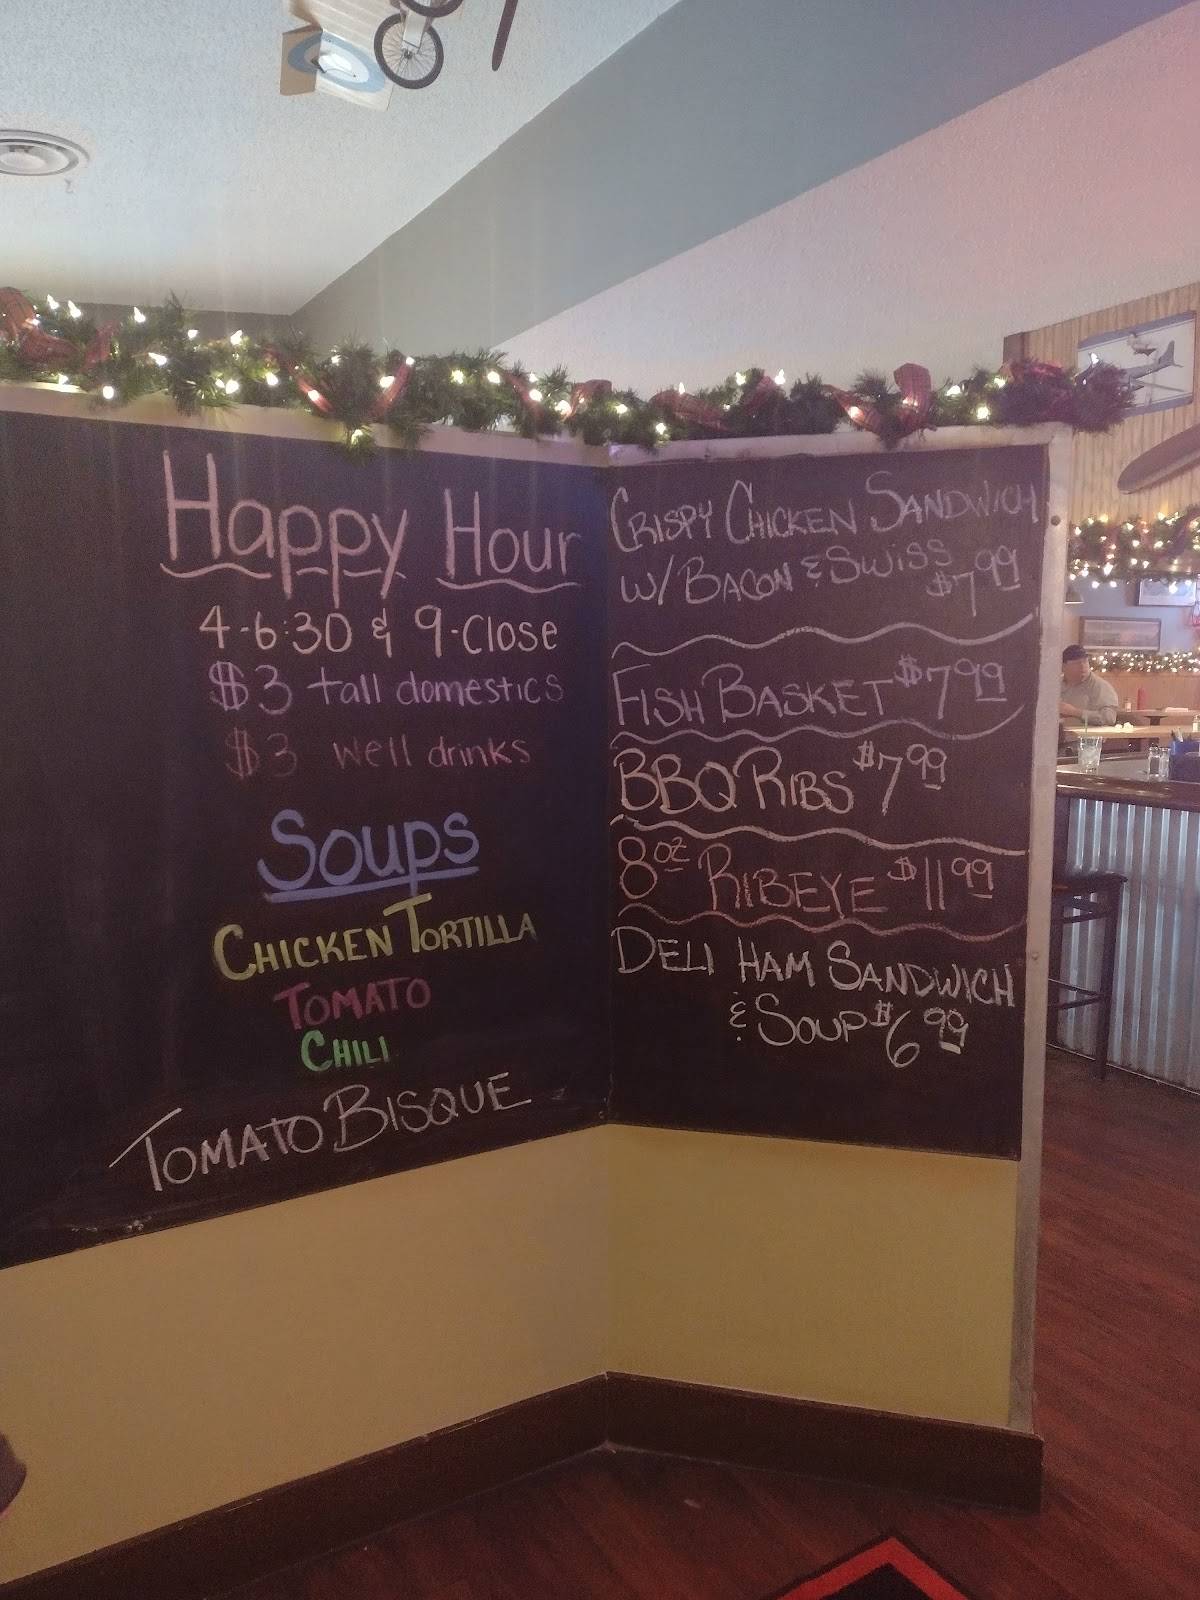 Happy Hour
4-6:30 & 9-Close
$3 tall domestics
$3 well drinks
Soups
CHICKEN TORTILLA
TOMATO
CHILI
TOMATO BISQUE
CRISPY CHICKEN SANDWICH
W/ BACON & SWISS
$7 99
FISH BASKET $7 99
BBQ RIBS $7 99
8 oz RIBEYE $11 99
DELI HAM SANDWICH
& SOUP $6 99